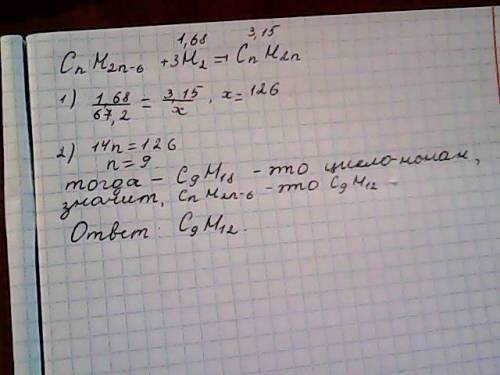 1,68 3,15
CₙH₂ₙ₋₆ +3H₂ = CₙH₂ₙ
1) 1,68/67,2 = 3,15/x , x = 126
2) 14n = 126
n = 9
тогда - C₉H₁₈ - то цикло-нонан,
значит, CₙH₂ₙ₋₆ - то C₉H₁₂ -
Ответ: C₉H₁₂.